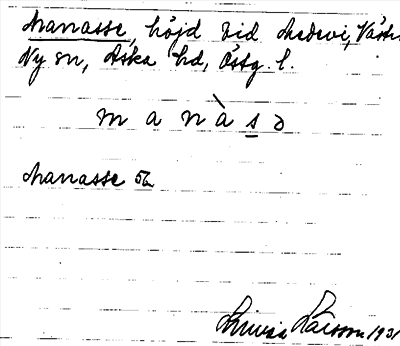 Manasse, höjd vid Medevi, Västra
Ny sn, Aska hd, Östg. l.
m a n à s ə
Manasse
Larsson 1931